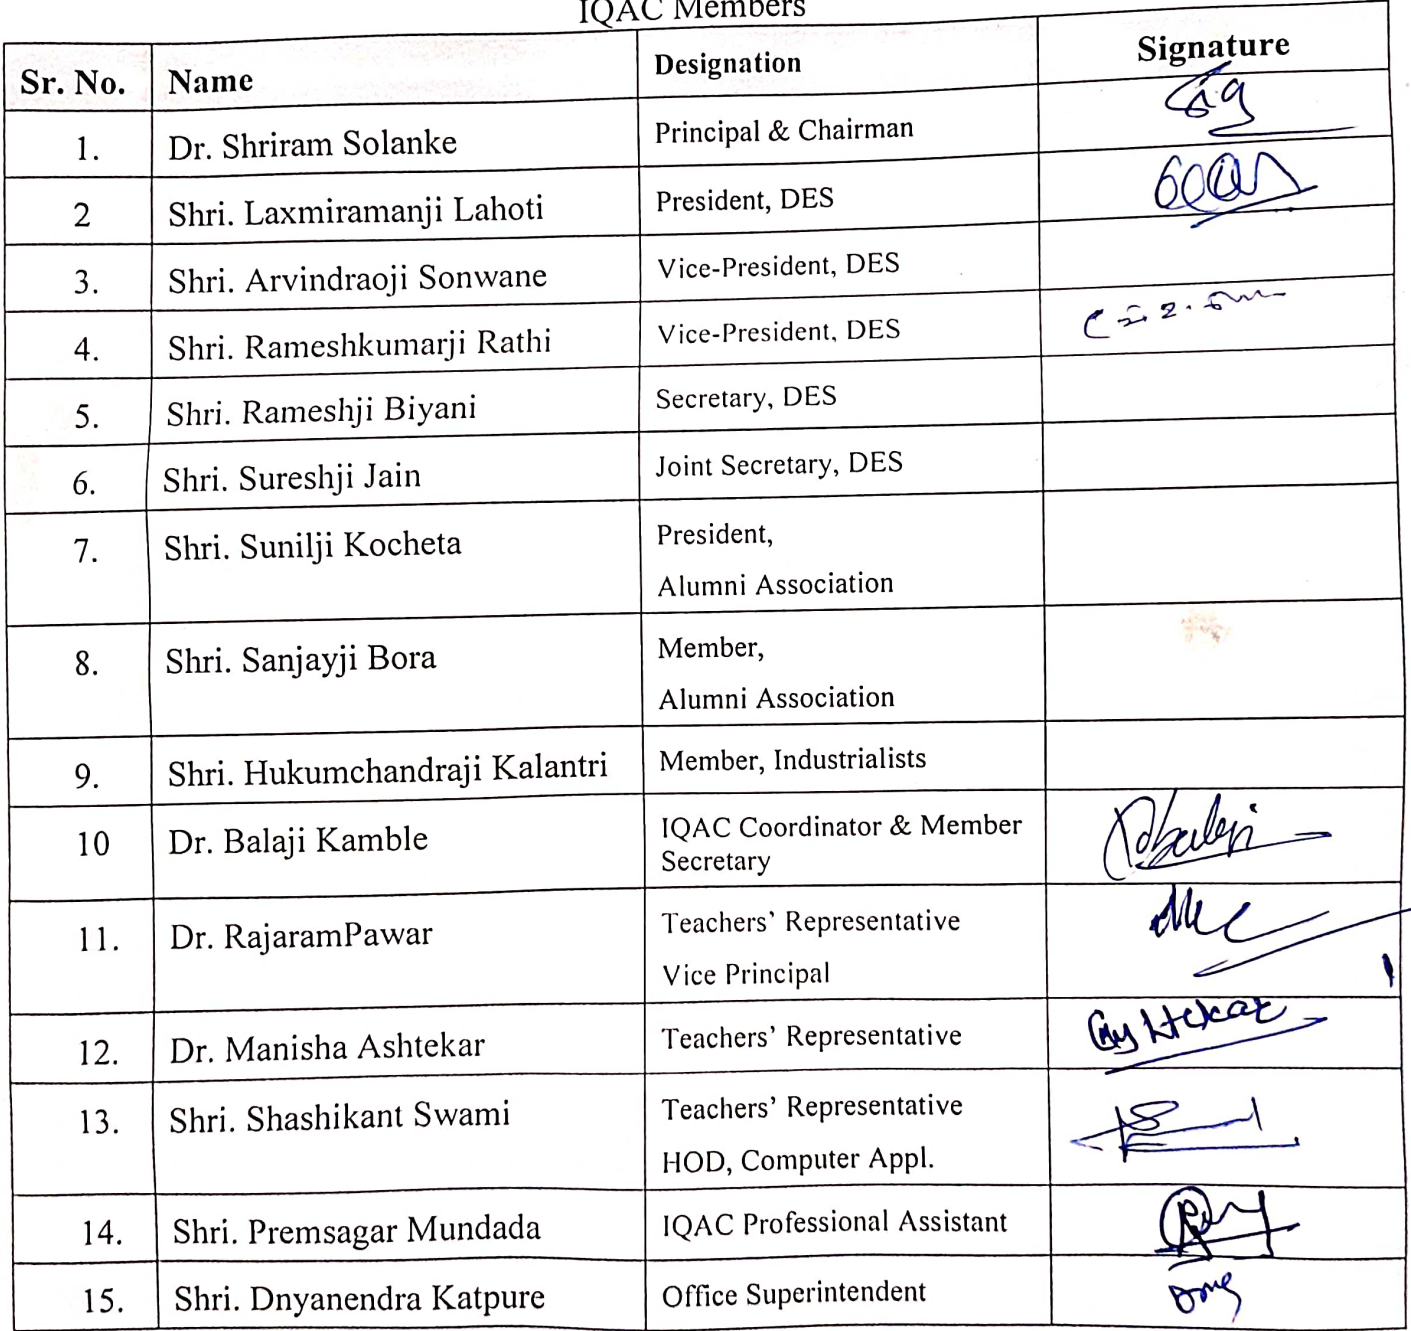 IQAC Members
Sr. No. Name Designation Signature
1. Dr. Shriram Solanke Principal & Chairman
2 Shri. Laxmiramanji Lahoti President, DES
3. Shri. Arvindraoji Sonwane Vice-President, DES
4. Shri. Rameshkumarji Rathi Vice-President, DES
5. Shri. Rameshji Biyani Secretary, DES
6. Shri. Sureshji Jain Joint Secretary, DES
7. Shri. Sunilji Kocheta President,
Alumni Association
8. Shri. Sanjayji Bora Member,
Alumni Association
9. Shri. Hukumchandraji Kalantri Member, Industrialists
10 Dr. Balaji Kamble IQAC Coordinator & Member
Secretary
11. Dr. RajaramPawar Teachers’ Representative
Vice Principal
12. Dr. Manisha Ashtekar Teachers’ Representative
13. Shri. Shashikant Swami Teachers’ Representative
HOD, Computer Appl.
14. Shri. Premsagar Mundada IQAC Professional Assistant
15. Shri. Dnyanendra Katpure Office Superintendent